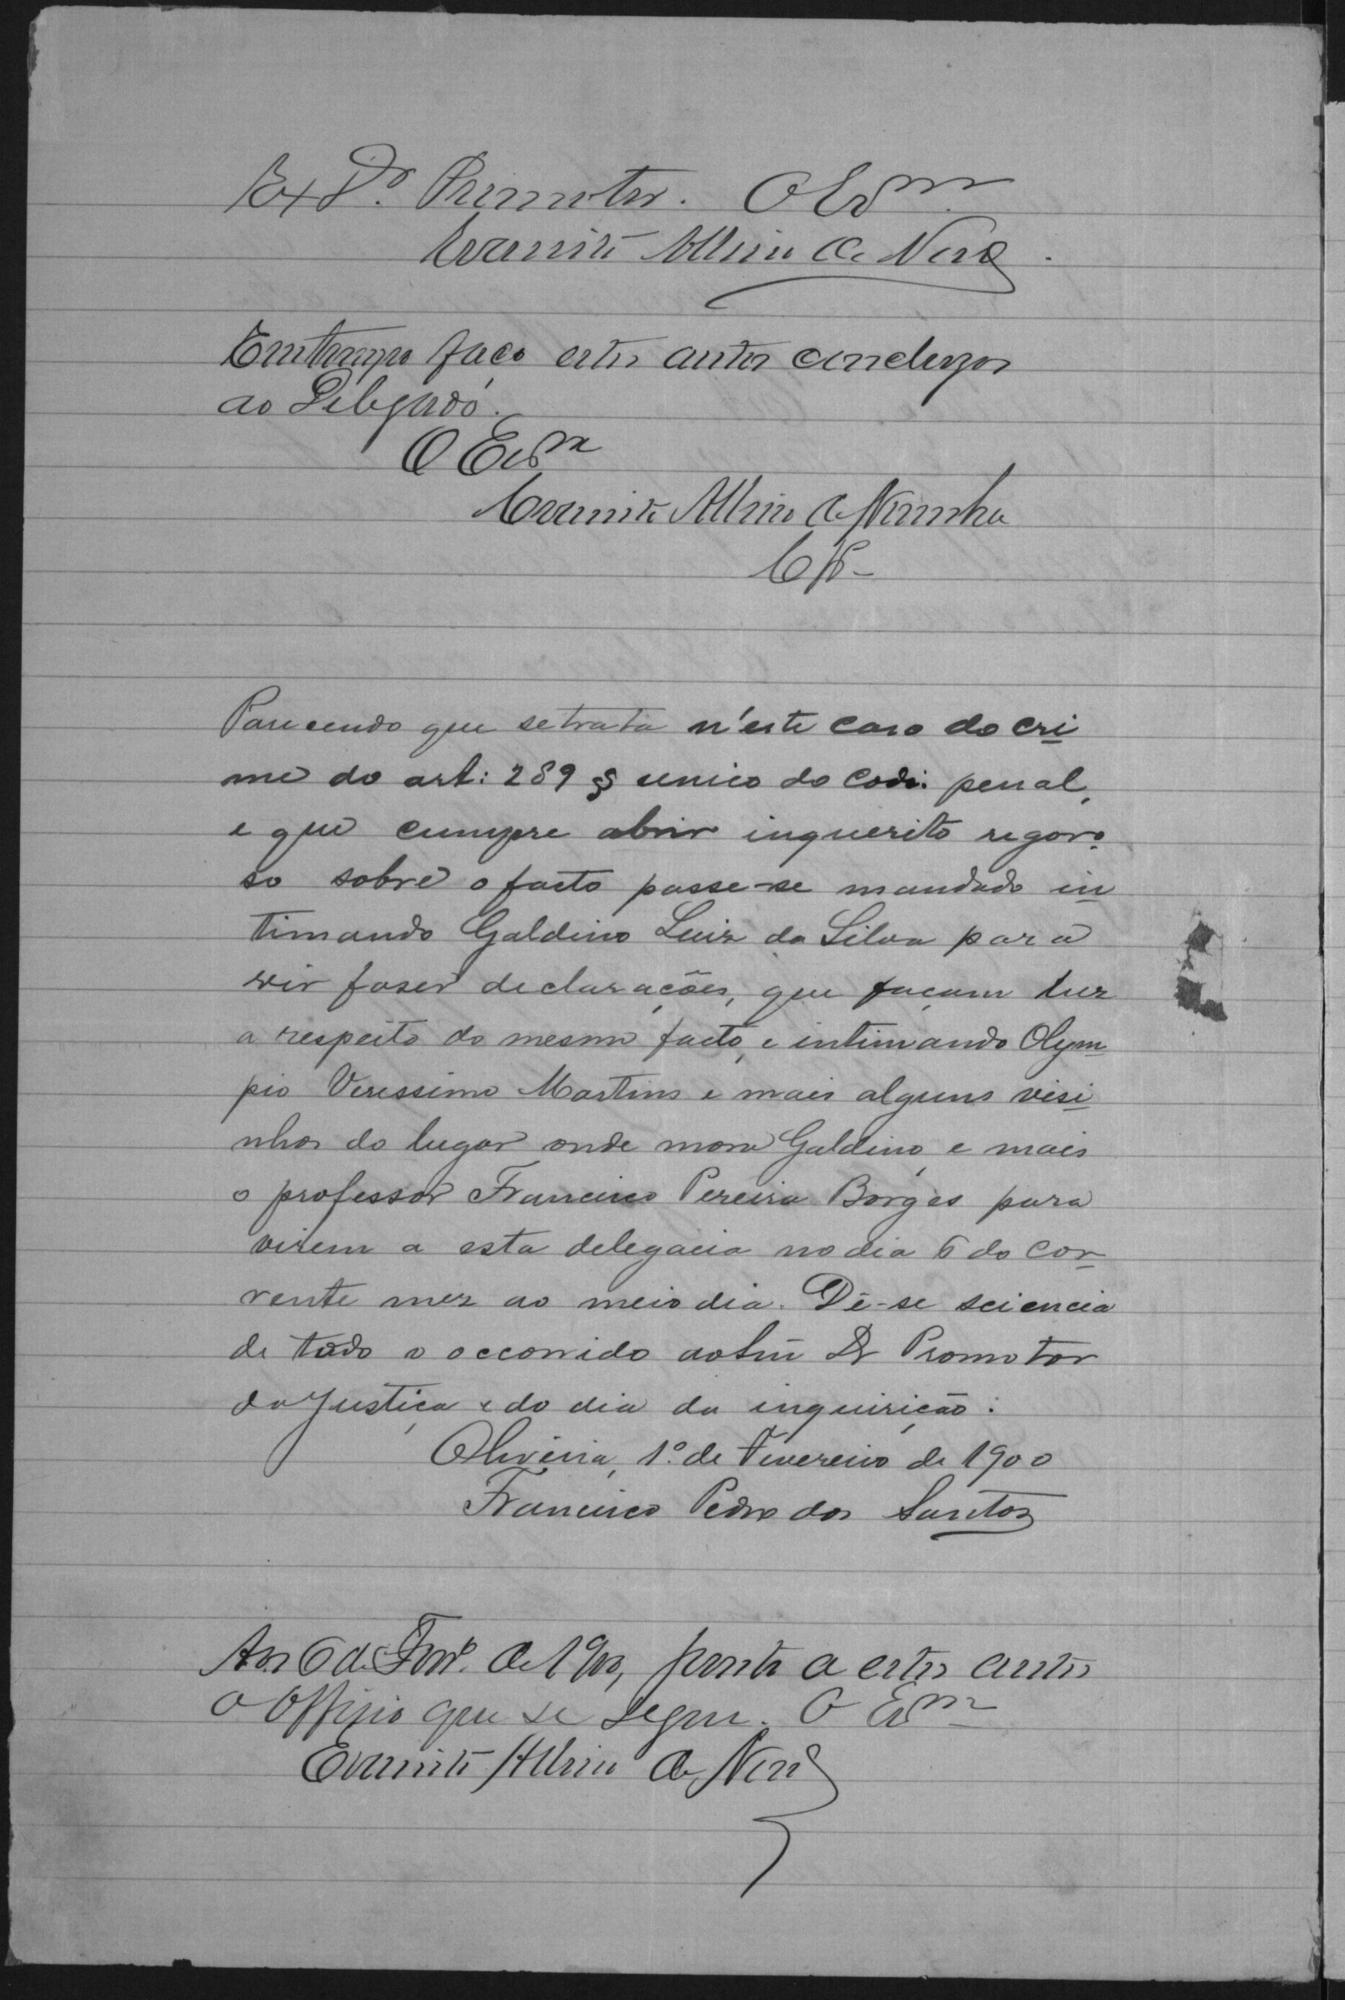 Ex Dr. Promotor. O Escm
Evaristo Albino de Noro
Em tempo faço estes autos conclusos
ao Delegado.
O Escm
Evaristo Albino de Noronha
Cls
Parecendo que se trata n'este caso do cri
me do art: 289 § unico do Cod: penal,
e que cumpre abrir inquerito rigoro
so sobre o facto passe-se mandado in
timando Galdino Luiz da Silva para
vir faser declarações, que façam luz
a respeito do mesmo facto, e intimando Olym
pio Verissimo Martins e mais alguns visi
nhos do lugar onde mora Galdino, e mais
o professor Francisco Pereira Borges para
virem a esta delegacia no dia 6 do cor
rente mez ao meio dia. Dê-se sciencia
de todo o occorrido ao Dr Promotor
da Justiça e do dia da inquirição:
Oliveira, 1º de Fevereiro de 1900
Francisco Pedro dos Santos
Aos 6 de Fevº de 1900, junto a estes autos
o Officio que se segue. O Escm
Evaristo Albino de Noro